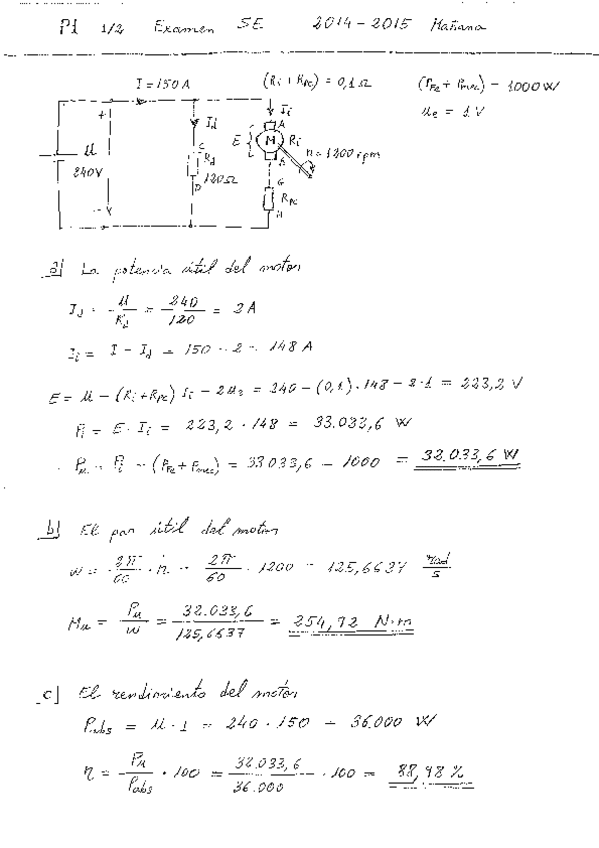 P1 1/2 Examen SE 2014-2015 Mañana
I = 150 A (Ri + Rpc) = 0,1 Ω (PFe + Pmec) = 1000 W
Id Ii A ue = 1 V
E M Ri
U C Rd n = 1200 rpm
240V 120Ω D G Rpc
H
a) La potencia útil del motor
Id = U/Rd = 240/120 = 2 A
Ii = I - Id = 150 - 2 = 148 A
E = U - (Ri+Rpc) Ii - 2ue = 240 - (0,1)·148 - 2·1 = 223,2 V
Pi = E · Ii = 223,2 · 148 = 33.033,6 W
Pu = Pi - (PFe + Pmec) = 33.033,6 - 1000 = 32.033,6 W
b) El par útil del motor
w = 2π/60 · n = 2π/60 · 1200 = 125,6637 rad/s
Mu = Pu/w = 32.033,6/125,6637 = 254,92 N·m
c) El rendimiento del motor
Pabs = U · I = 240 · 150 = 36.000 W
η = Pu/Pabs · 100 = 32.033,6/36.000 · 100 = 88,98 %